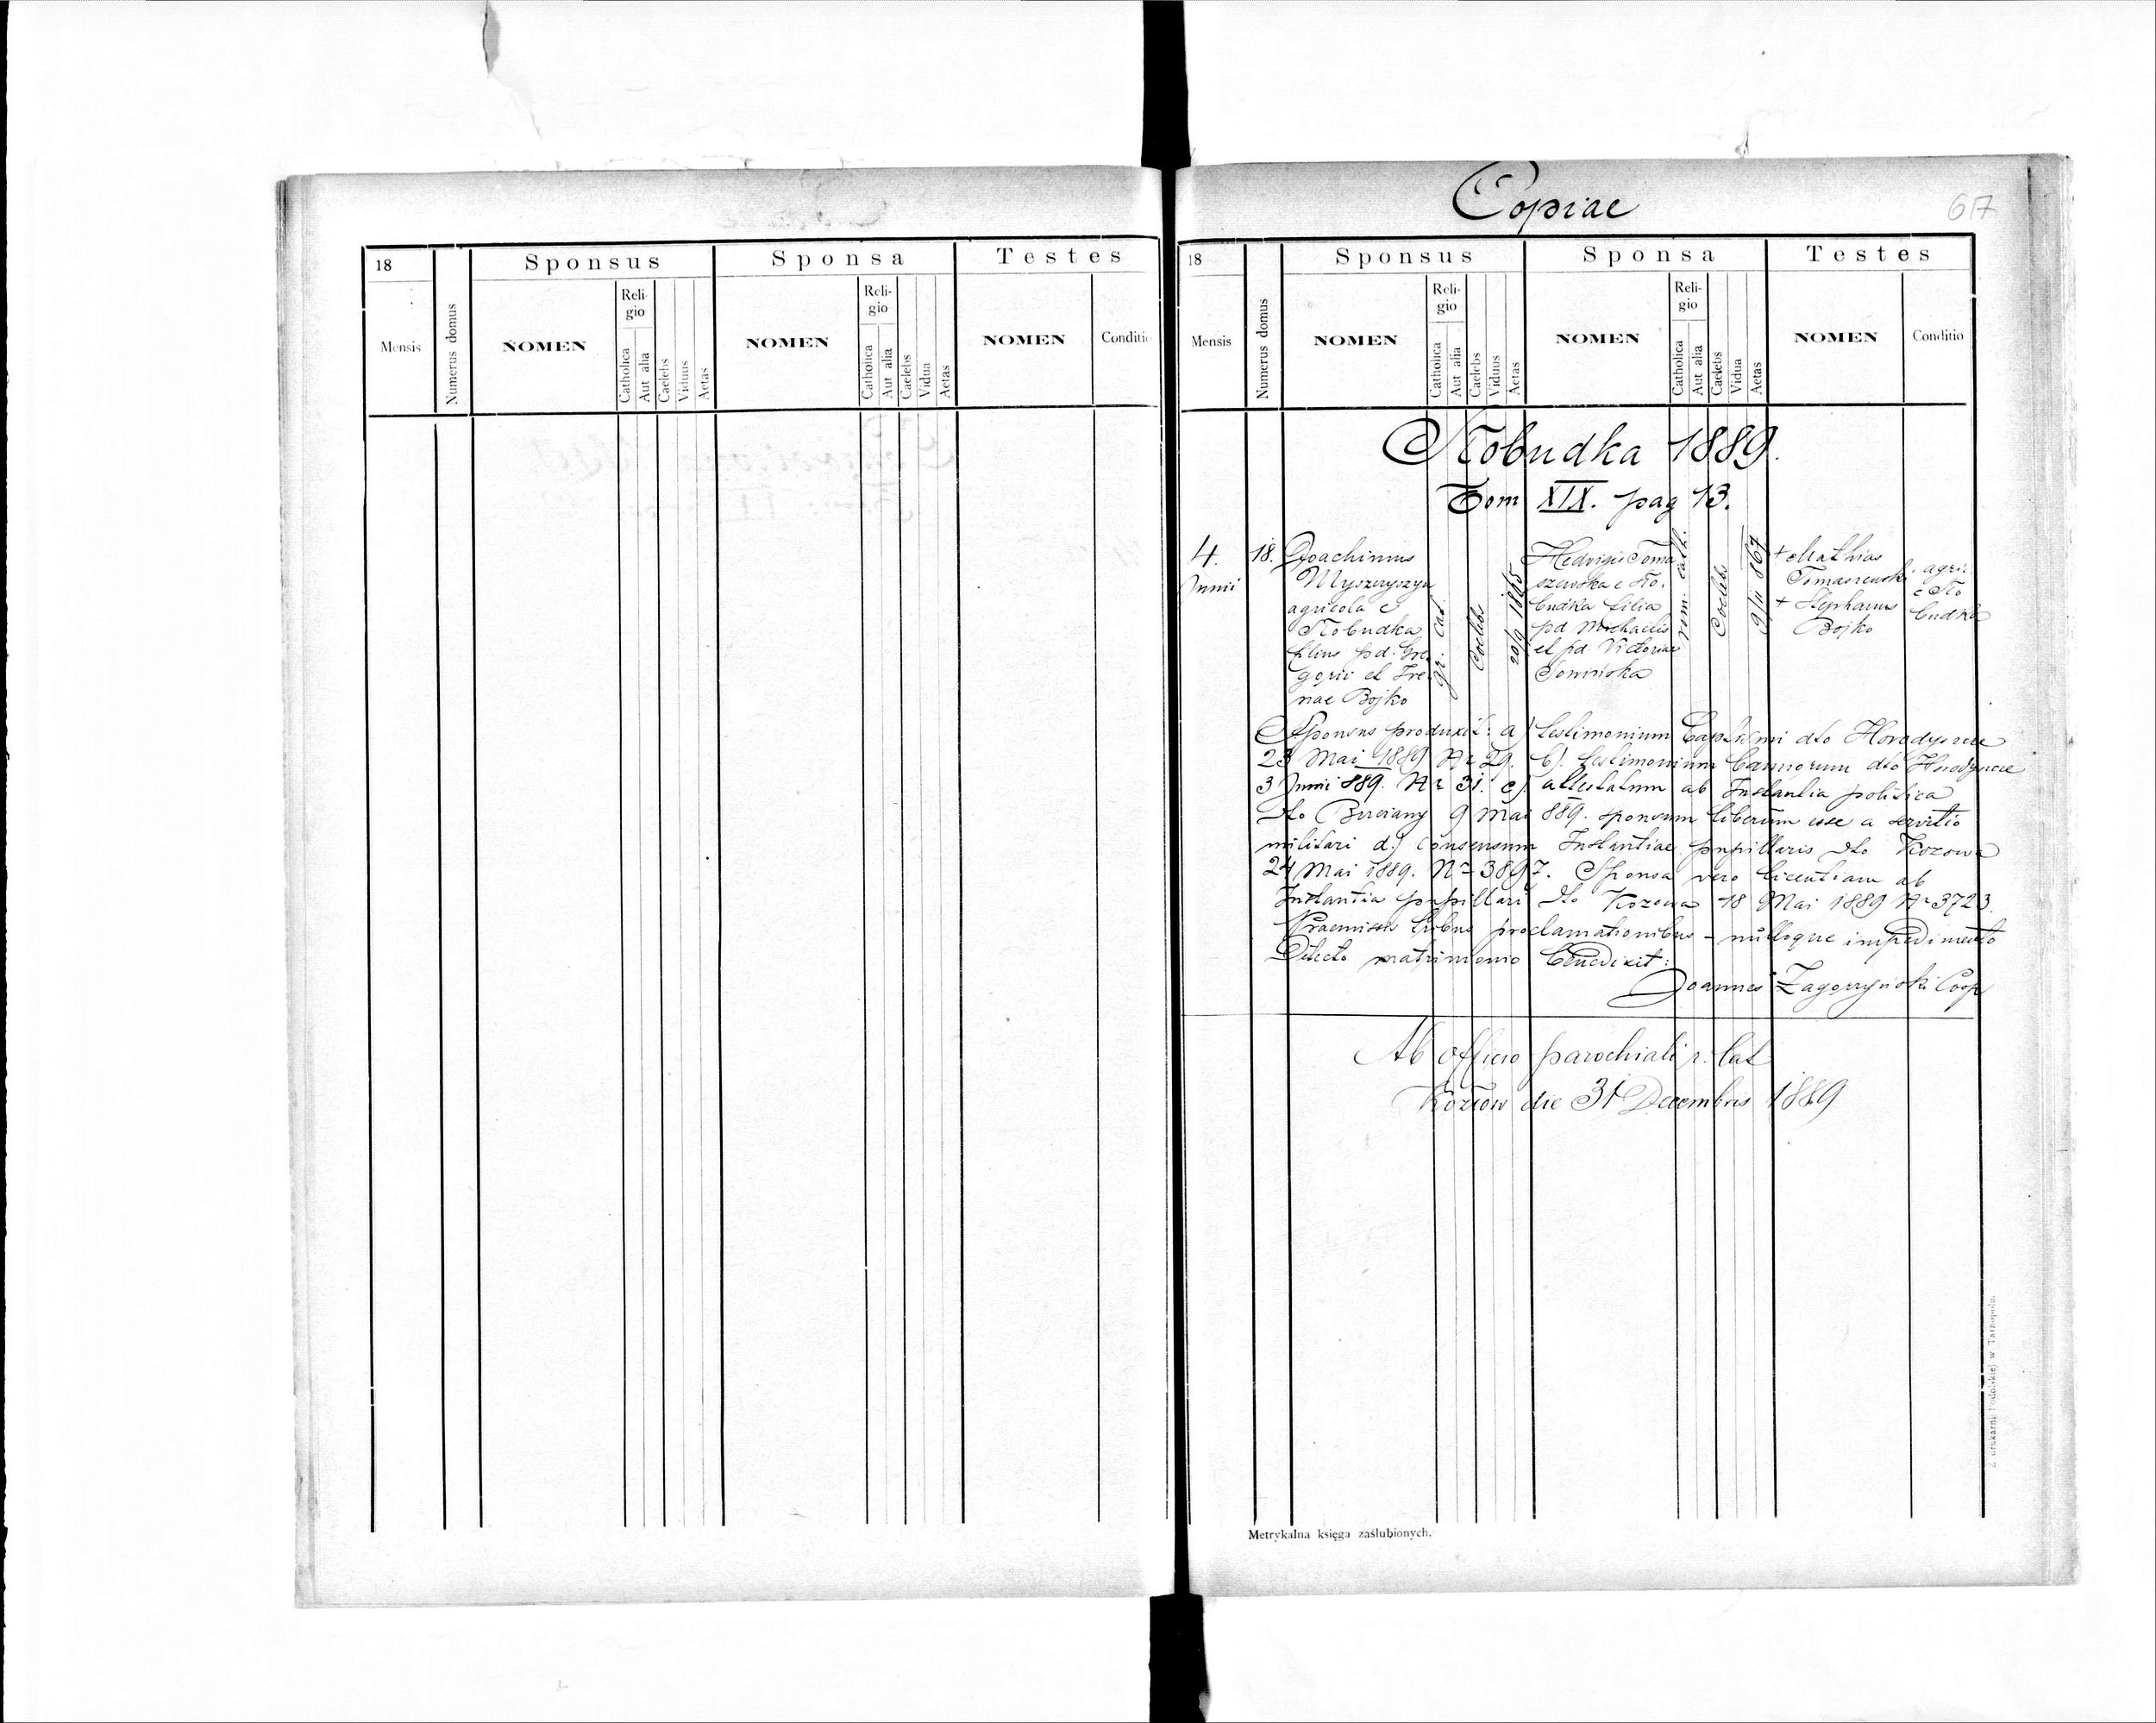 18
Mensis
Numerus domus
Sponsus
NOMEN
Reli-
gio
Catholica
Aut alia
Caelebs
Viduus
Aetas
Sponsa
NOMEN
Reli-
gio
Catholica
Aut alia
Caelebs
Vidua
Aetas
Testes
NOMEN
Conditio
Copiae
67
18
Mensis
Numerus domus
Sponsus
NOMEN
Reli-
gio
Catholica
Aut alia
Caelebs
Viduus
Aetas
Sponsa
NOMEN
Reli-
gio
Catholica
Aut alia
Caelebs
Vidua
Aetas
Testes
NOMEN
Conditio
Słobudka 1889.
Tom XIX. pag 13.
4.
Junii
18.
Joachimus
Myszczyszyn
agricola e
Słobudka
filius pd: Gre
gorii et Ire
nae Bojko
gr. cat
Coelebs
20/9 1865
Hedvigis Toma
szewska e Sło.
budka filia
pd Michaelis
et pd. Victoriae
Sominska
rom. cath.
Coelebs
9/11 867
+ Mathias
Tomaszewski
+ Stephanus
Bojko
agric.
e Sło
budka
Sponsus produxit: a) testimonium Baptismi dto Horodyszcze
23 Mai 1889 Nr 29. b). testimonium bannorum dto Horodyszcze
3 Junii 889. Nr 31. c). attestatum ab Instantia politica
dto Brzeżany 9 Mai 889. sponsum liberum esse a servitio
militari d.) consensum Instantiae pupillaris dto Kozowa
24 Mai 1889. Nr 3897. Sponsa vero licentiam ab
Instantia pupillari dto Kozowa 18 Mai 1889 Nr 3723.
Praemissis tribus proclamationibus – nulloque impedimento
Detecto matrimonio benedixit:
Joannes Zagorzyński Coop
Ab officio parochiali r. lat
Kozłow die 31 Decembris 1889
Metrykalna księga zaślubionych.
Z drukarni Podolskiej w Tarnopolu.